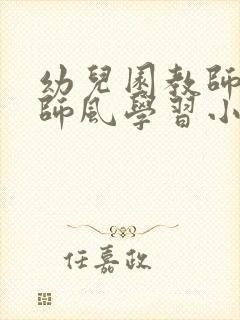 幼兒園教師
師風學習小
任嘉政